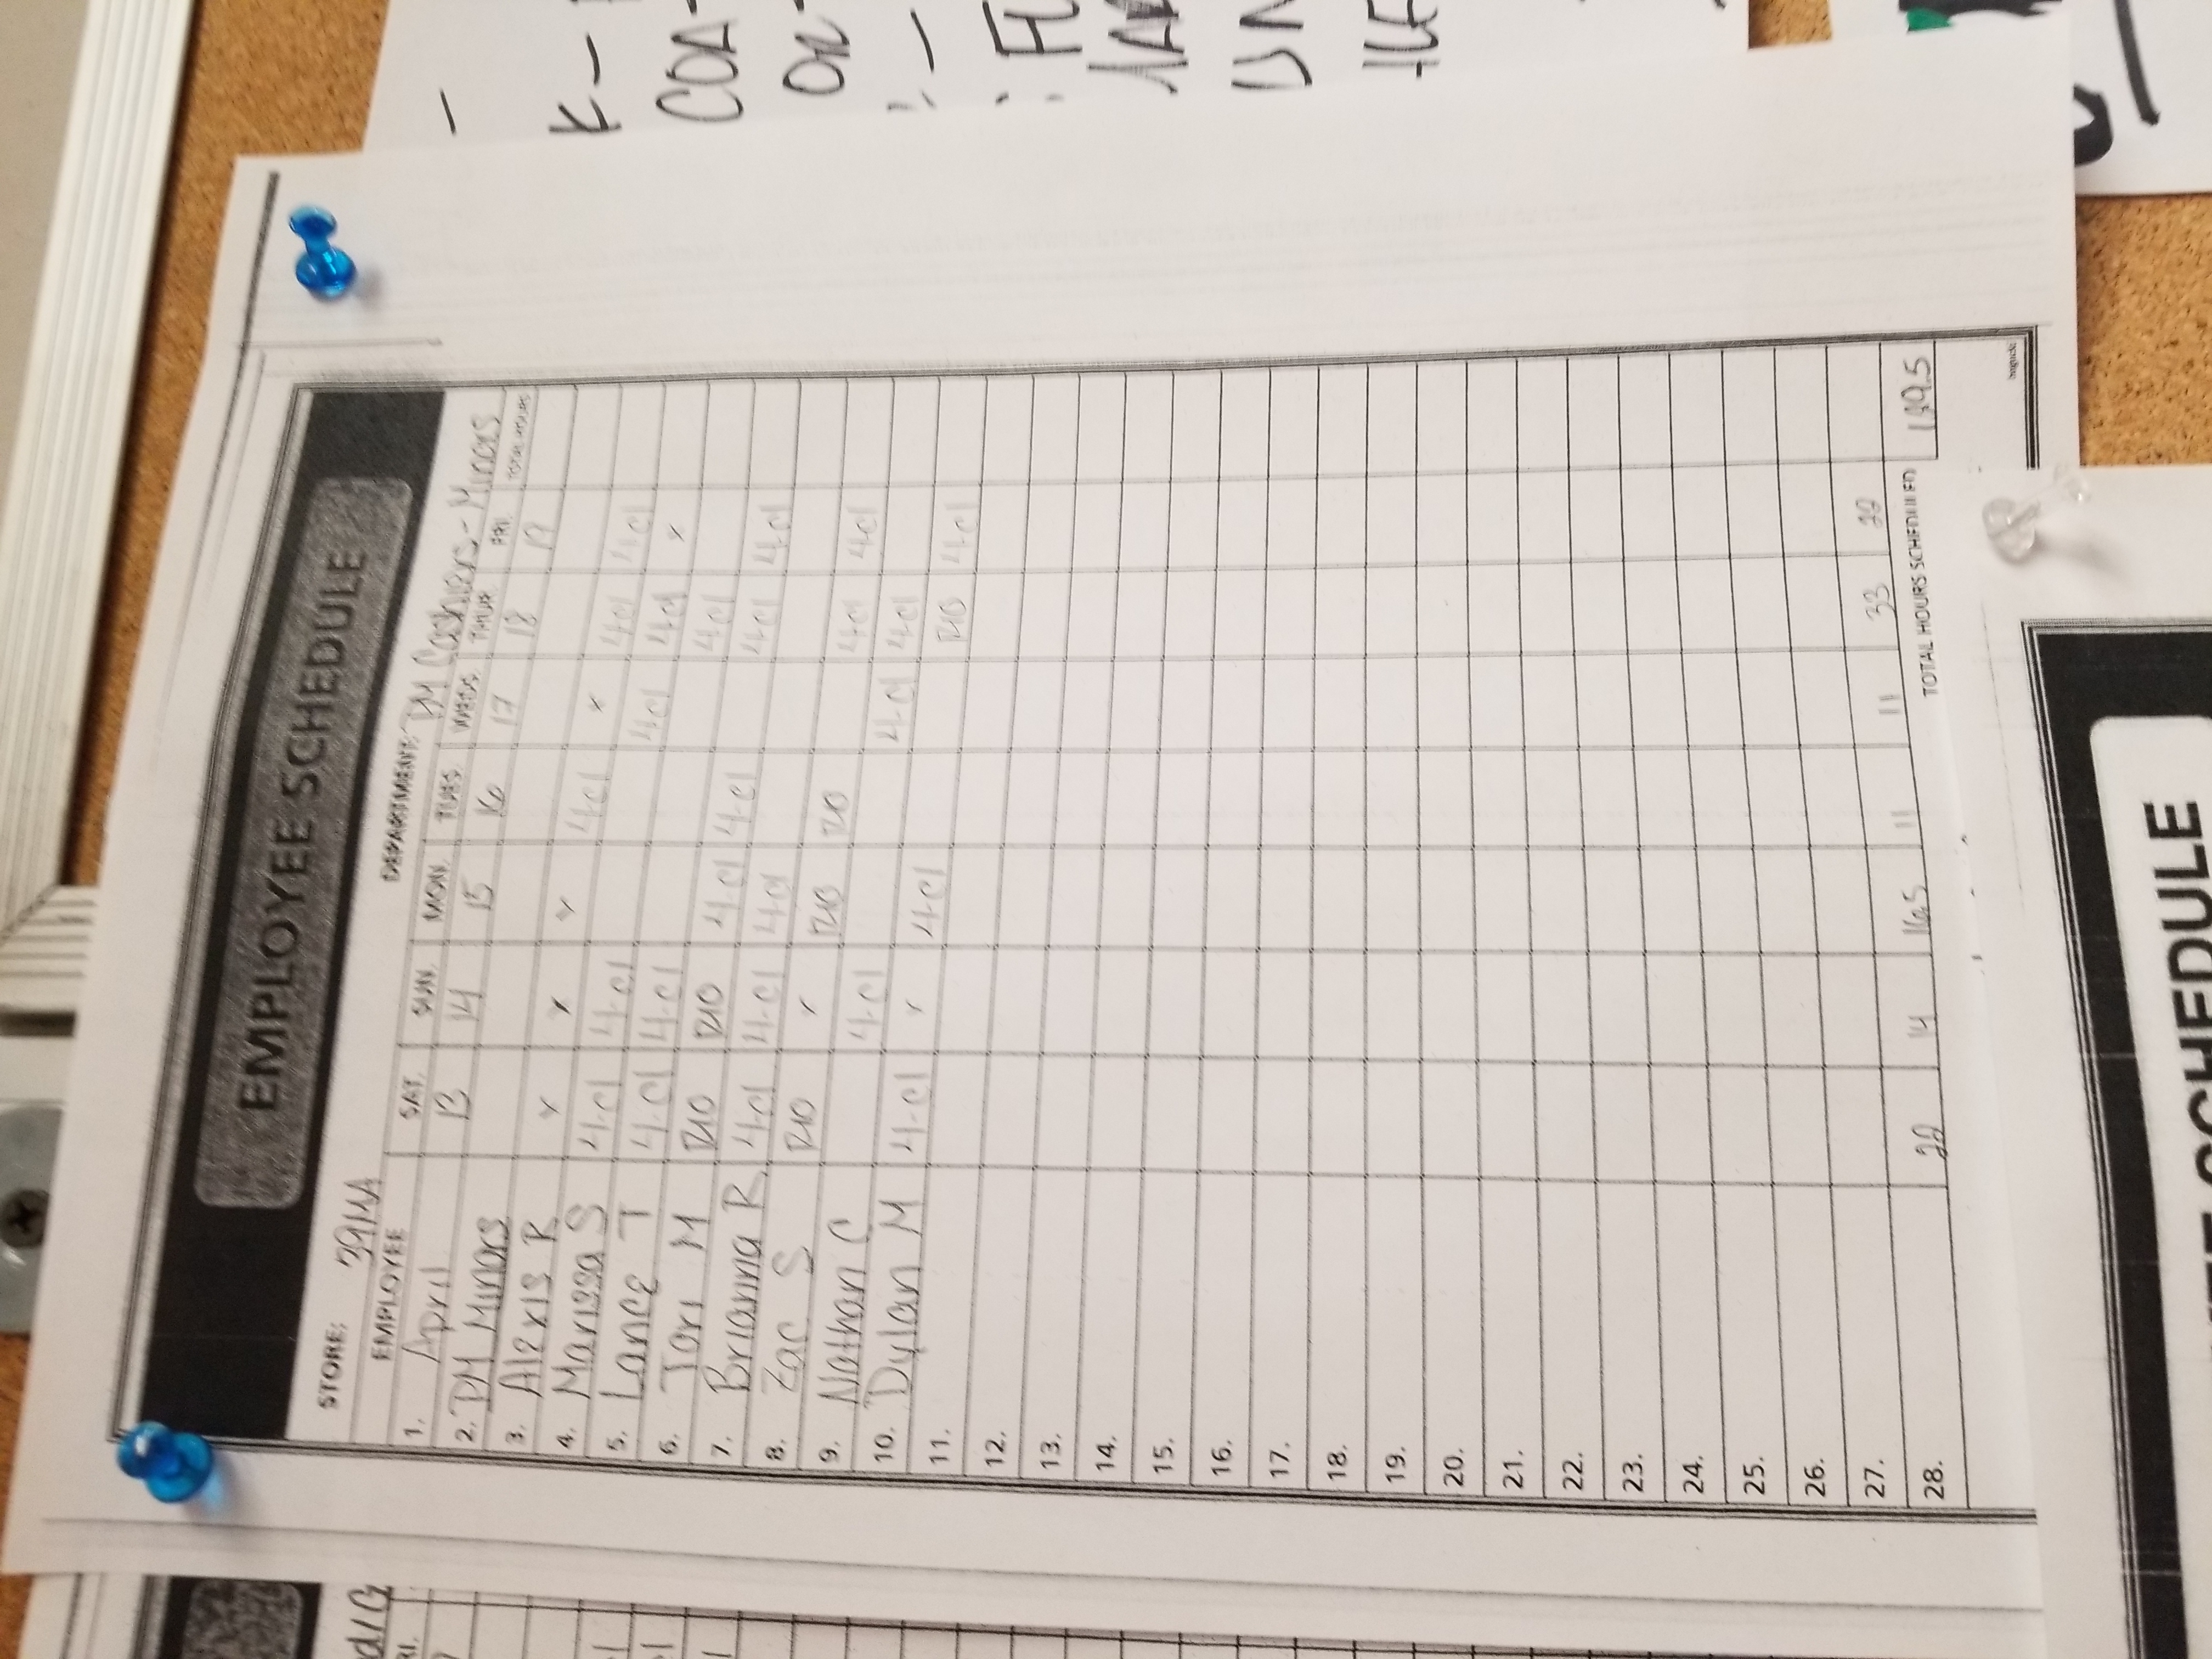 EMPLOYEE SCHEDULE
STORE: 39MA DEPARTMENT: PM Cashiers - Minors
EMPLOYEE SAT. SUN. MON. TUES. WEDS. THUR. FRI. TOTAL HOURS
1. April 13 14 15 16 17 18 19
2. PM Minors
3. Alexis R x x x 4-cl x 4-cl 4-cl
4. Marissa S 4-cl 4-cl 4-cl 4-cl x
5. Lance T 4-cl 4-cl 4-cl
6. Tori M R/O R/O 4-cl 4-cl 4-cl 4-cl
7. Brianna R 4-cl 4-cl 4-cl
8. Zac S R/O x R/O R/O 4-cl 4-cl
9. Nathan C 4-cl 4-cl 4-cl
10. Dylan M 4-cl x 4-cl R/O 4-cl
11.
12.
13.
14.
15.
16.
17.
18.
19.
20.
21.
22.
23.
24.
25.
26.
27.
28. 22 14 16.5 11 11 33 22
TOTAL HOURS SCHEDULED
SCHEDULE